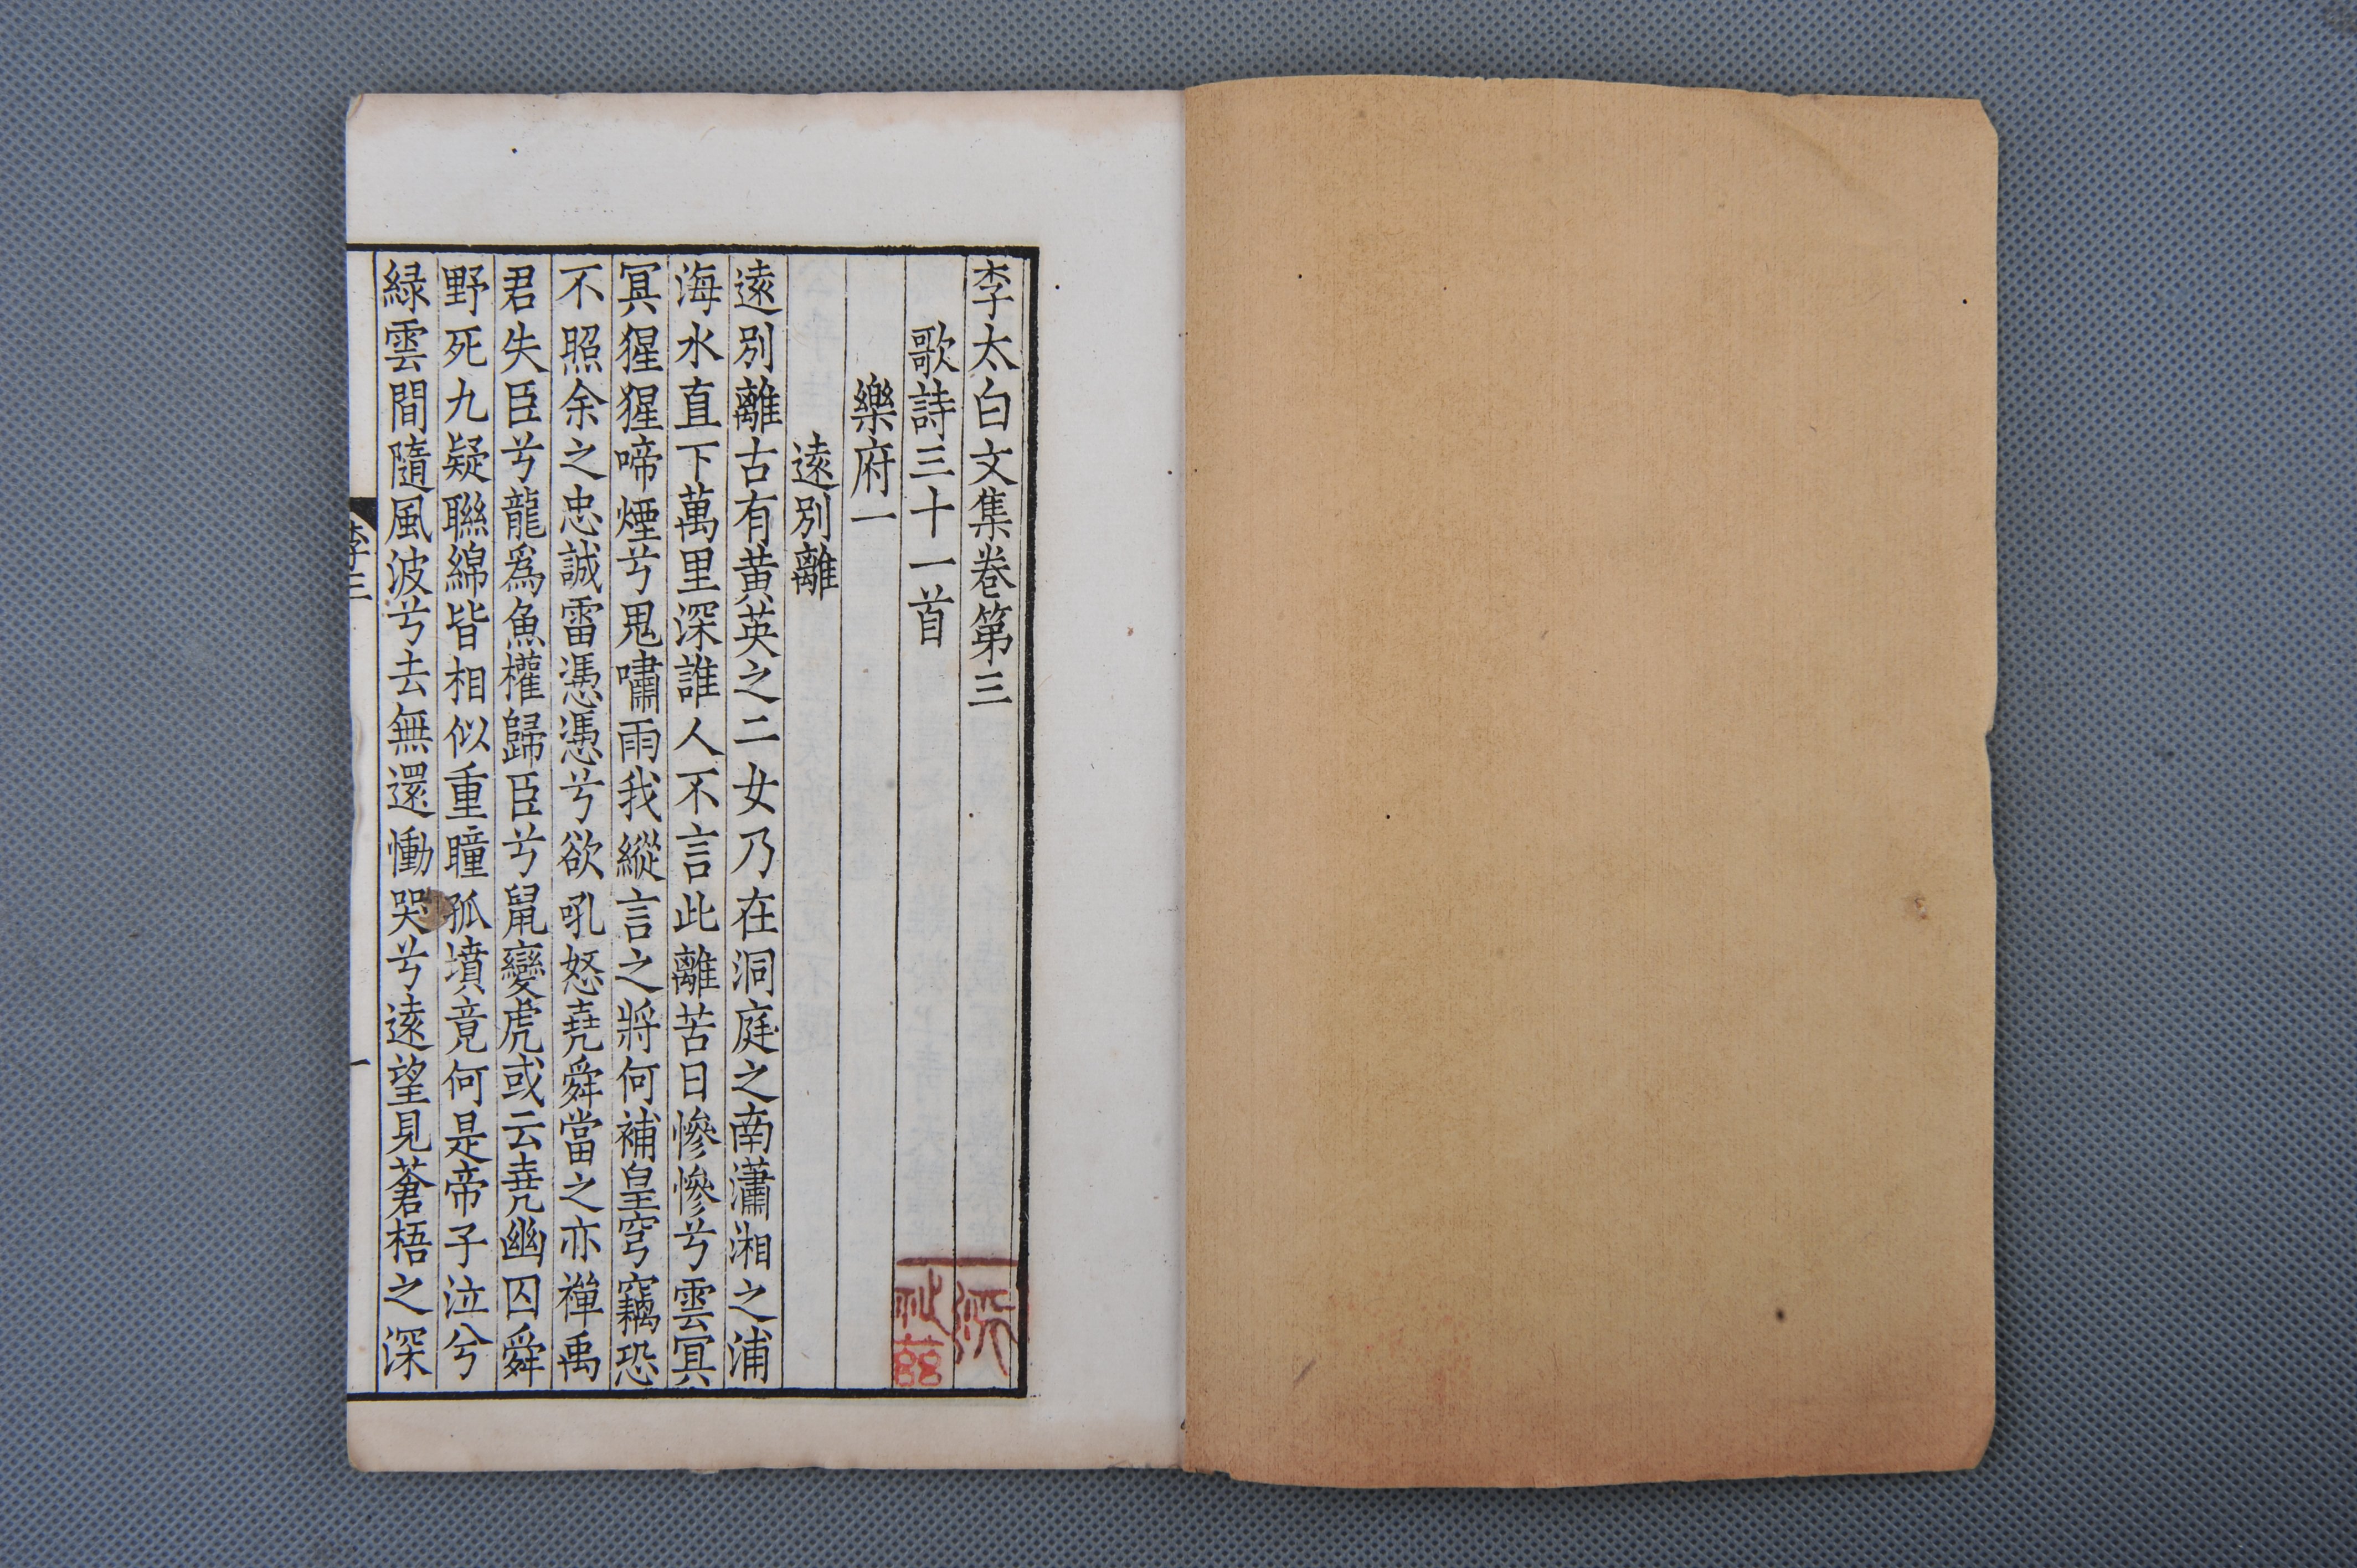 李太白文集卷第三
歌詩三十一首
樂府一
逺別離
逺別離古有黄英之二女乃在洞庭之南瀟湘之浦
海水直下萬里深誰人不言此離苦日慘慘兮雲冥
冥猩猩啼煙兮鬼嘯雨我縱言之將何補皇穹竊恐
不照余之忠誠雷憑憑兮欲吼怒堯舜當之亦禪禹
君失臣兮龍爲魚權歸臣兮鼠變虎或云堯幽囚舜
野死九疑聯綿皆相似重瞳孤墳竟何是帝子泣兮
緑雲間隨風波兮去無還慟哭兮逺望見蒼梧之深
李三
一